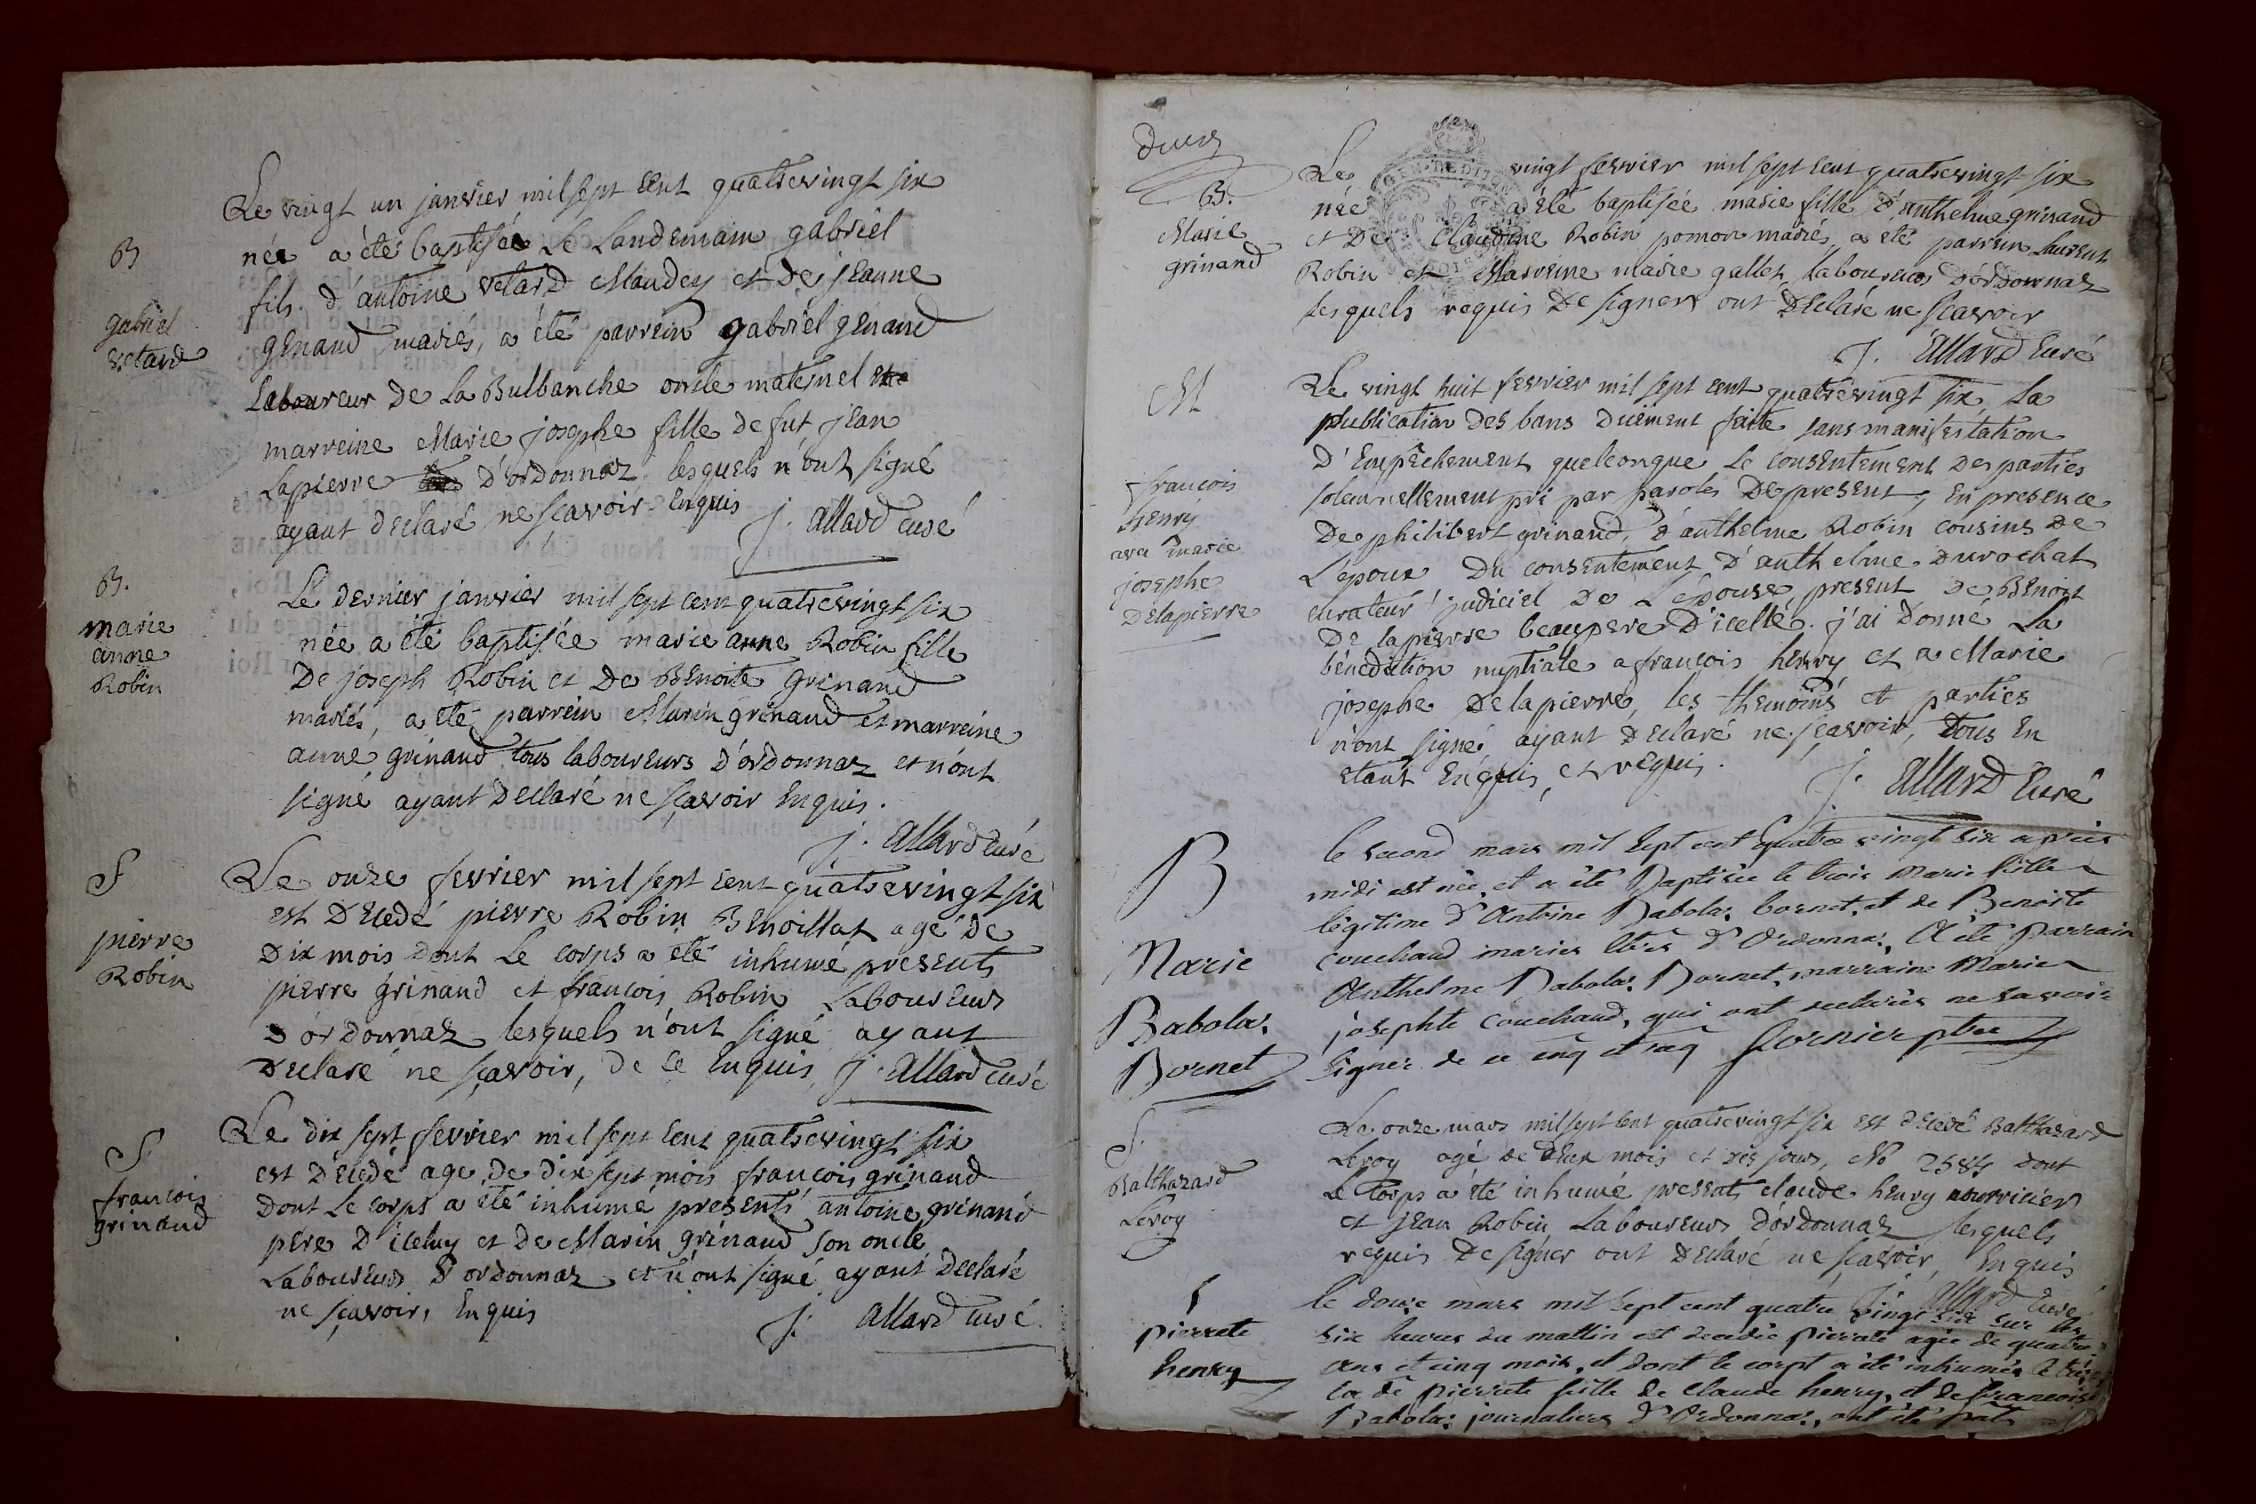 B
gabriel
vetard
Le vingt un janvier mil sept cent quatrevingt six
née a été baptisée Le Landemain gabriel
fils d'antoine vetard Maudey et de jeanne
genand mariés, a été parrein gabriel genand
Laboureur de La Bulbanche oncle maternel
marreine Marie josephe fille de fût jean
Lapierre d'ordonnaz lesquels n'ont signé
ayant declaré ne sçavoir Enquis j. allard curé
B.
marie
anne
Robin
Le dernier janvier mil sept cent quatrevingt six
née a été baptisée marie anne Robin fille
De joseph Robin et De Benoite Grinand
mariés, a été parrein Marin grinand et marreine
anne grinand tous laboureurs d'ordonnaz et n'ont
signé ayant declaré ne sçavoir Enquis.
j. allard curé
S
pierre
Robin
Le onze fevrier mil sept cent quatrevingt six
est Decedé pierre Robin Benoillat agé de
Dix mois dont Le corps a été inhumé presents
pierre grinand et francois Robin Laboureurs
D'ordonnaz lesquels n'ont signé ayant
Declaré ne sçavoir, de ce Enquis j. allard curé
S
francois
grinand
Le dix sept fevrier mil sept cent quatrevingt six
est Decedé age de dix sept mois francois grinand
dont Le corps a été inhumé presents antoine grinand
pere D'iceluy et de Marin grinand son oncle
Laboureurs d'ordonnaz et n'ont signé ayant Declaré
ne sçavoir, Enquis j. allard curé
deux
B.
Marie
grinand
Le vingt fevrier mil sept cent quatrevingt six
née a été baptisée marie fille d'anthelme grinand
et De Claudine Robin pomon mariés a été parrein Laurent
Robin et Marreine marie gallet Laboureurs d'ordonnaz
lesquels requis De signer ont Declaré ne sçavoir
J. allard Curé
M
francois
henry
avec marie
josephe
Delapierre
Le vingt huit fevrier mil sept cent quatrevingt six La
publication des bans duëment faite sans manifestation
D'Empêchement quelconque Le consentement Des parties
solemnellement pri par paroles De present, En presence
De philibert grinand, d'anthelme Robin cousins de
L'epoux Du consentement D'anthelme Durochat
curateur judiciel De L'epouse, present De Benoit
De lapierre beaupere D'icelle. j'ai donné La
bénediction nuptiale a francois henry et a Marie
josephe De lapierre, les themoins et parties
n'ont signé, ayant Declaré ne sçavoir, Tous En
etant Enquis, et requis. j. allard Curé
B
Marie
Babolaz
Bornet
le second mars mil sept cent quatre vingt six apries
midi est née, et a été Baptisée le trois Marie fille
légitime d'Antoine Babolaz bornet, et de Benoite
Couchaud mariés lab.rs d'Ordonnaz, A été Parrain
Anthelme Babolaz Bornet, marraine Marie
josephte Couchaud, qui ont declarés ne savoir
signer de ce enq et req fornier ptre
S.
Balthazard
Leroy
Le onze mars mil sept cent quatrevingt six est Decedé Balthazard
Leroy agé de Deux mois et dis jours, No 2584 dont
Le Corps a été inhumé presents claude henry nourricier
et jean Robin Laboureurs D'ordonnaz lesquels
requis De signer ont Declaré ne sçavoir, Enquis
j. allard Curé
S
pierrete
henry
le douze mars mil sept cent quatre vingt six sur les
six heures du mattin est decedée pierrete agée de quatre
ans et cinq mois, et dont le corpt a été inhumés
la de pierrete fille de Claude henry, et de francoise
Babolaz journaliers d'Ordonnaz, ont été